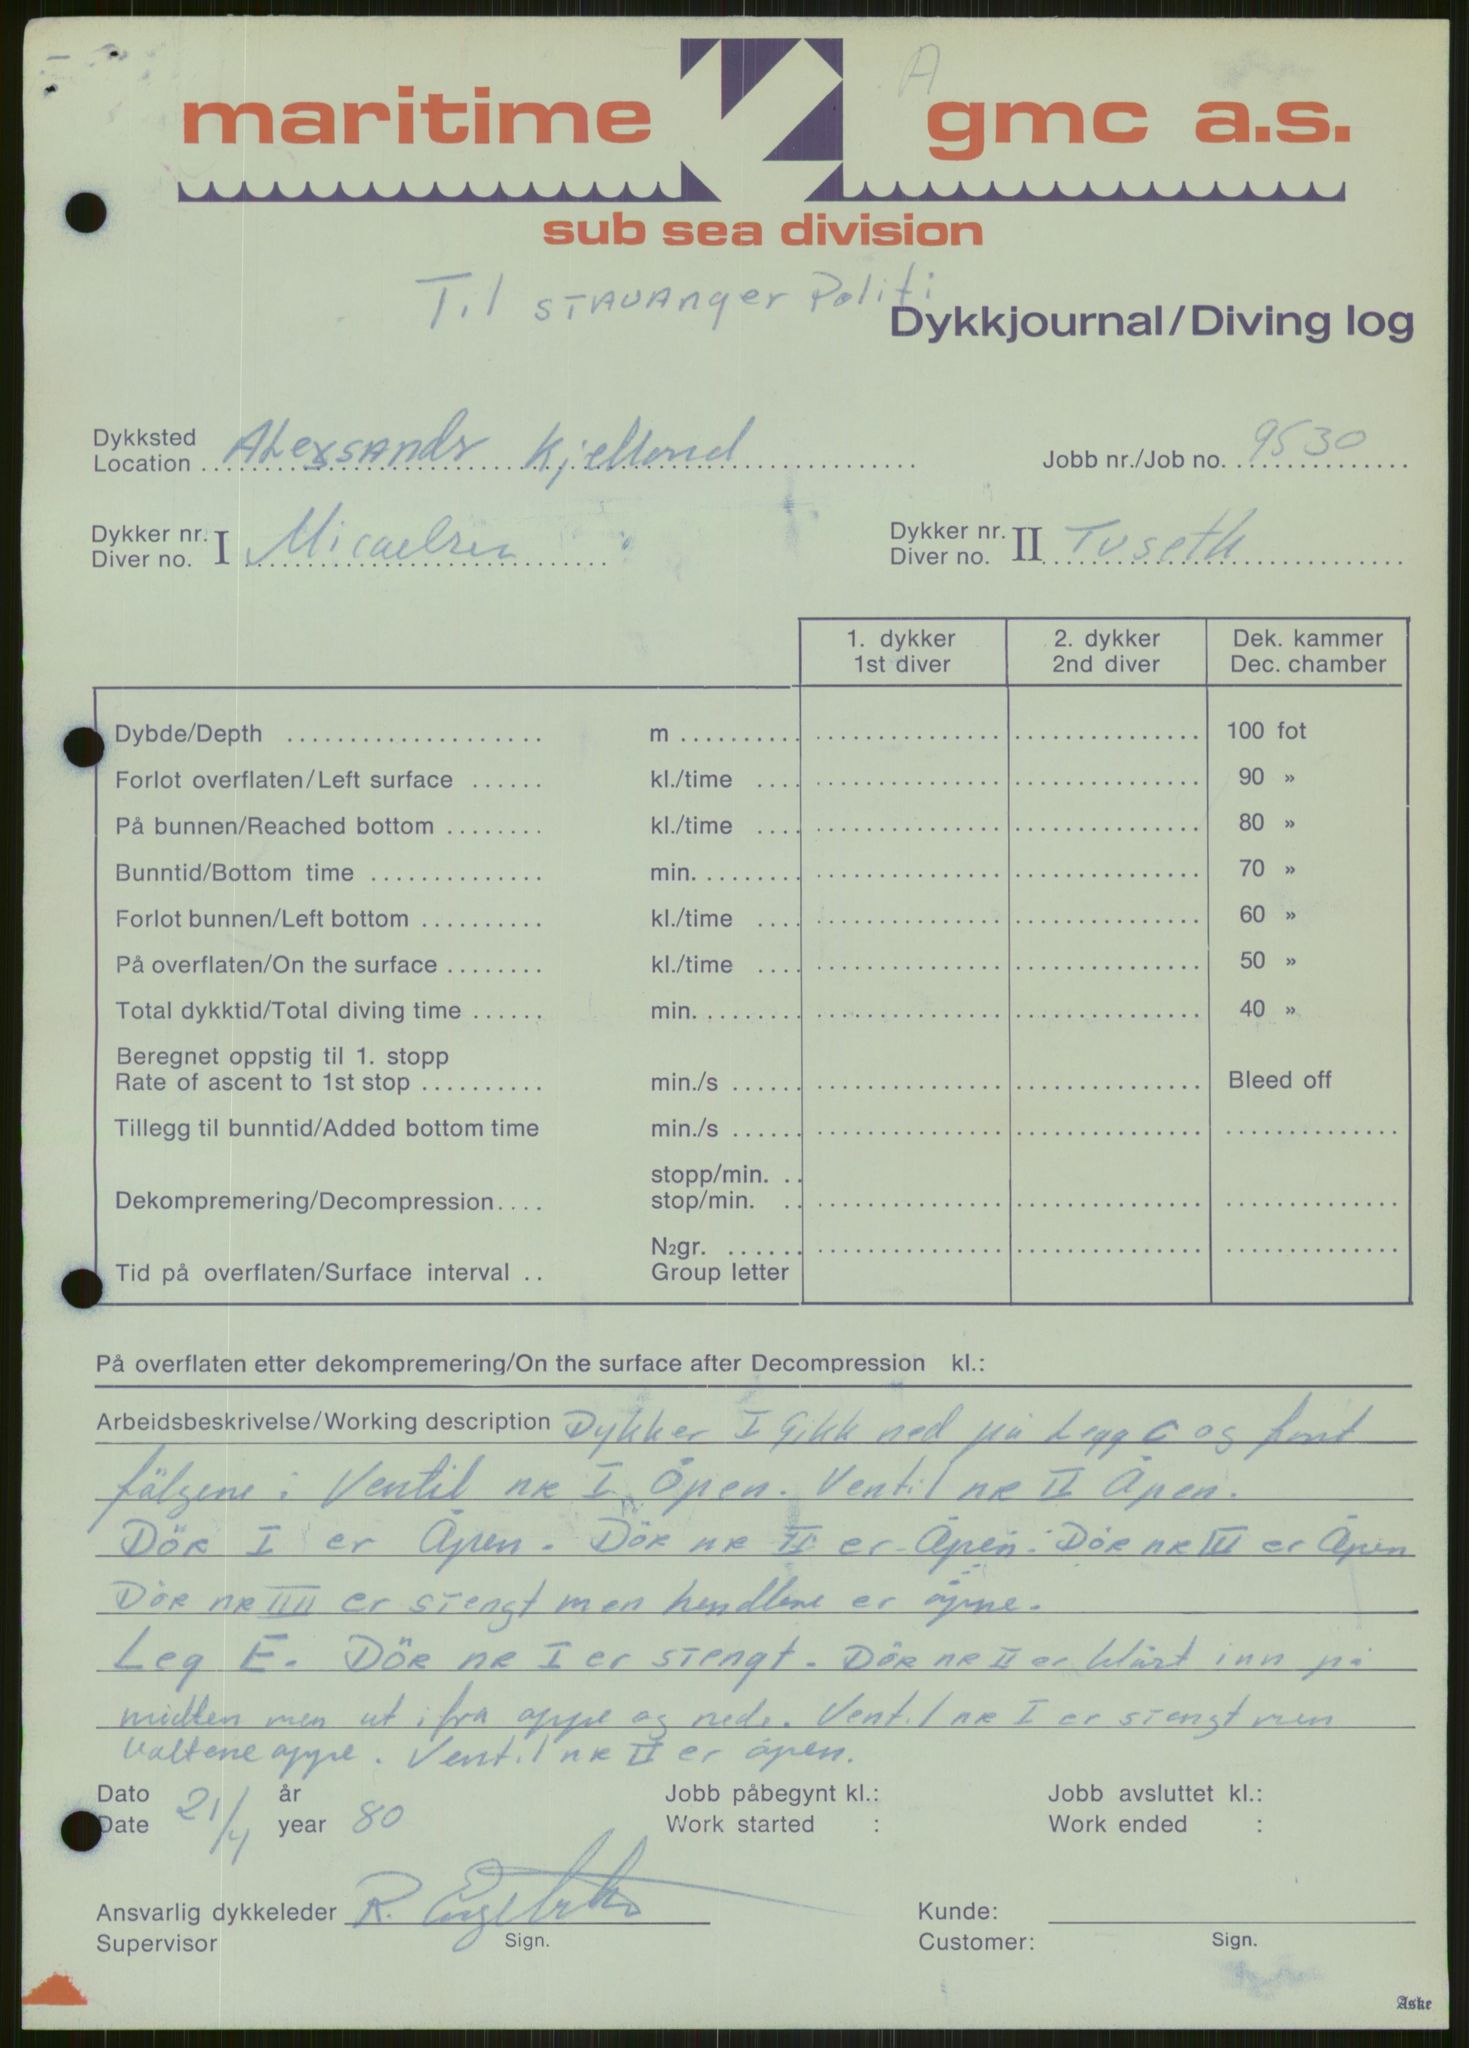 A
maritime gmc a.s.
sub sea division
Til STAVANger Politi
Dykkjournal/Diving log
Dykksted
Location ALexSANdr Kjelland
Jobb nr./Job no. 9530
Dykker nr.
Diver no. I Micaelsen
Dykker nr.
Diver no. II Tuseth
1. dykker 2. dykker Dek. kammer
1st diver 2nd diver Dec. chamber
Dybde/Depth .................... m .......... 100 fot
Forlot overflaten/Left surface ...... kl./time .... 90 »
På bunnen/Reached bottom ........ kl./time .... 80 »
Bunntid/Bottom time .............. min. ........ 70 »
Forlot bunnen/Left bottom .......... kl./time .... 60 »
På overflaten/On the surface ........ kl./time .... 50 »
Total dykktid/Total diving time ...... min. ........ 40 »
Beregnet oppstig til 1. stopp
Rate of ascent to 1st stop .......... min./s ...... Bleed off
Tillegg til bunntid/Added bottom time min./s ......
stopp/min. ..
Dekompremering/Decompression.... stop/min. ..
N2gr. ......
Tid på overflaten/Surface interval .. Group letter
På overflaten etter dekompremering/On the surface after Decompression kl.:
Arbeidsbeskrivelse/Working description Dykker I Gikk ned på Legg C og
følgene : Ventil nR I Åpen. Ventil nR II Åpen.
DöR I er Åpen. DöR nR II er Åpen. DöR nR III er Åpen
DöR nR IIII er stengt men hendlene er åpne.
Leg E. DöR nR I er stengt. DöR nR II er inn på
midten men ut ifra oppe og nede. Ventil nR I er stengt men
oppe. Ventil nR II er åpen.
Dato
Date 21/4 år
year 80
Jobb påbegynt kl.:
Work started :
Jobb avsluttet kl.:
Work ended :
Ansvarlig dykkeleder R.
Supervisor Sign.
Kunde:
Customer: Sign.
Aske